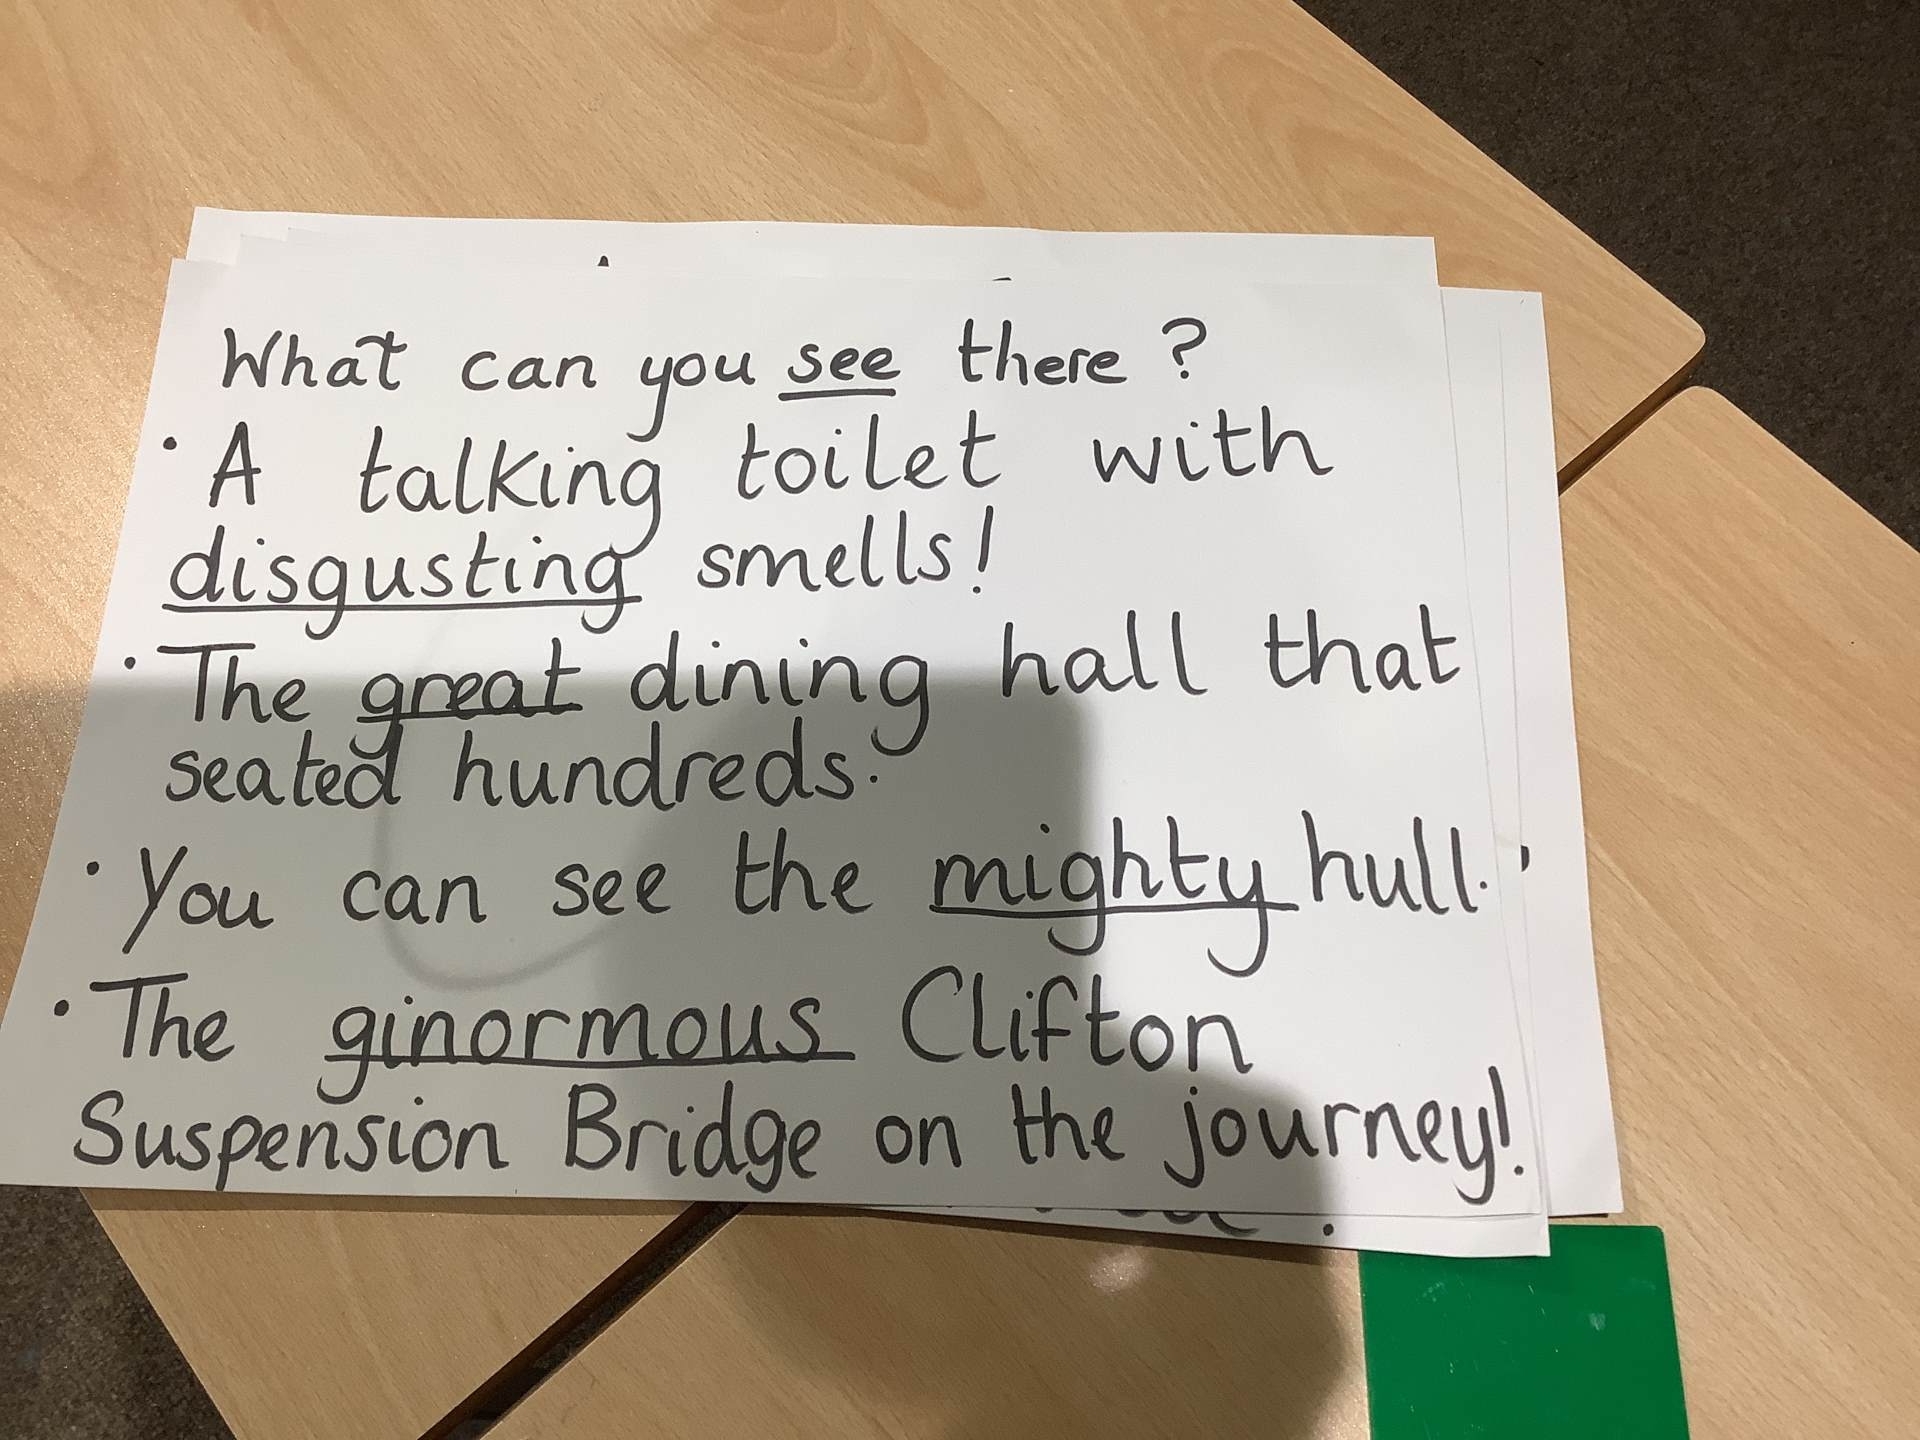 What can you see there?
· A talking toilet with
disgusting smells!
· The great dining hall that
seated hundreds.
· You can see the mighty hull.
· The ginormous Clifton
Suspension Bridge on the journey!